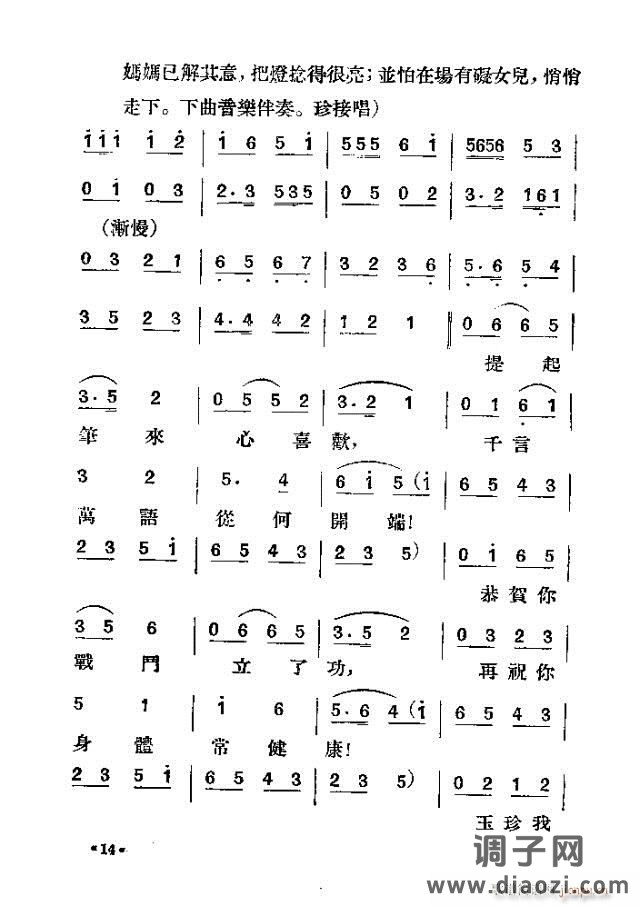 媽媽已解其意，把燈捻得很亮；並怕在場有礙女兒，悄悄
走下。下曲音樂伴奏。珍接唱）
1 1 1 1 2 | 1 6 5 1 | 5 5 5 6 1 | 5656 5 3
0 1 0 3 | 2·3 535 | 0 5 0 2 | 3·2 161
(漸慢)
0 3 2 1 | 6 5 6 7 | 3 2 3 6 | 5·6 5 4
3 5 2 3 | 4·4 4 2 | 1 2 1 ‖ 0 6 6 5
提 起
3·5 2 | 0 5 5 2 | 3·2 1 | 0 1 6 1
筆 來 心 喜 歡， 千 言
3 2 | 5· 4 | 6 1 5 (1 | 6 5 4 3
萬 語 從 何 開 端！
2 3 5 1 | 6 5 4 3 | 2 3 5) | 0 1 6 5
恭 賀 你
3 5 6 | 0 6 6 5 | 3·5 2 | 0 3 2 3
戰 鬥 立 了 功， 再 祝 你
5 1 | 1 6 | 5·6 4 (1 | 6 5 4 3
身 體 常 健 康！
2 3 5 1 | 6 5 4 3 | 2 3 5) | 0 2 1 2
玉 珍 我
«14»
调子网
www.diaozi.com